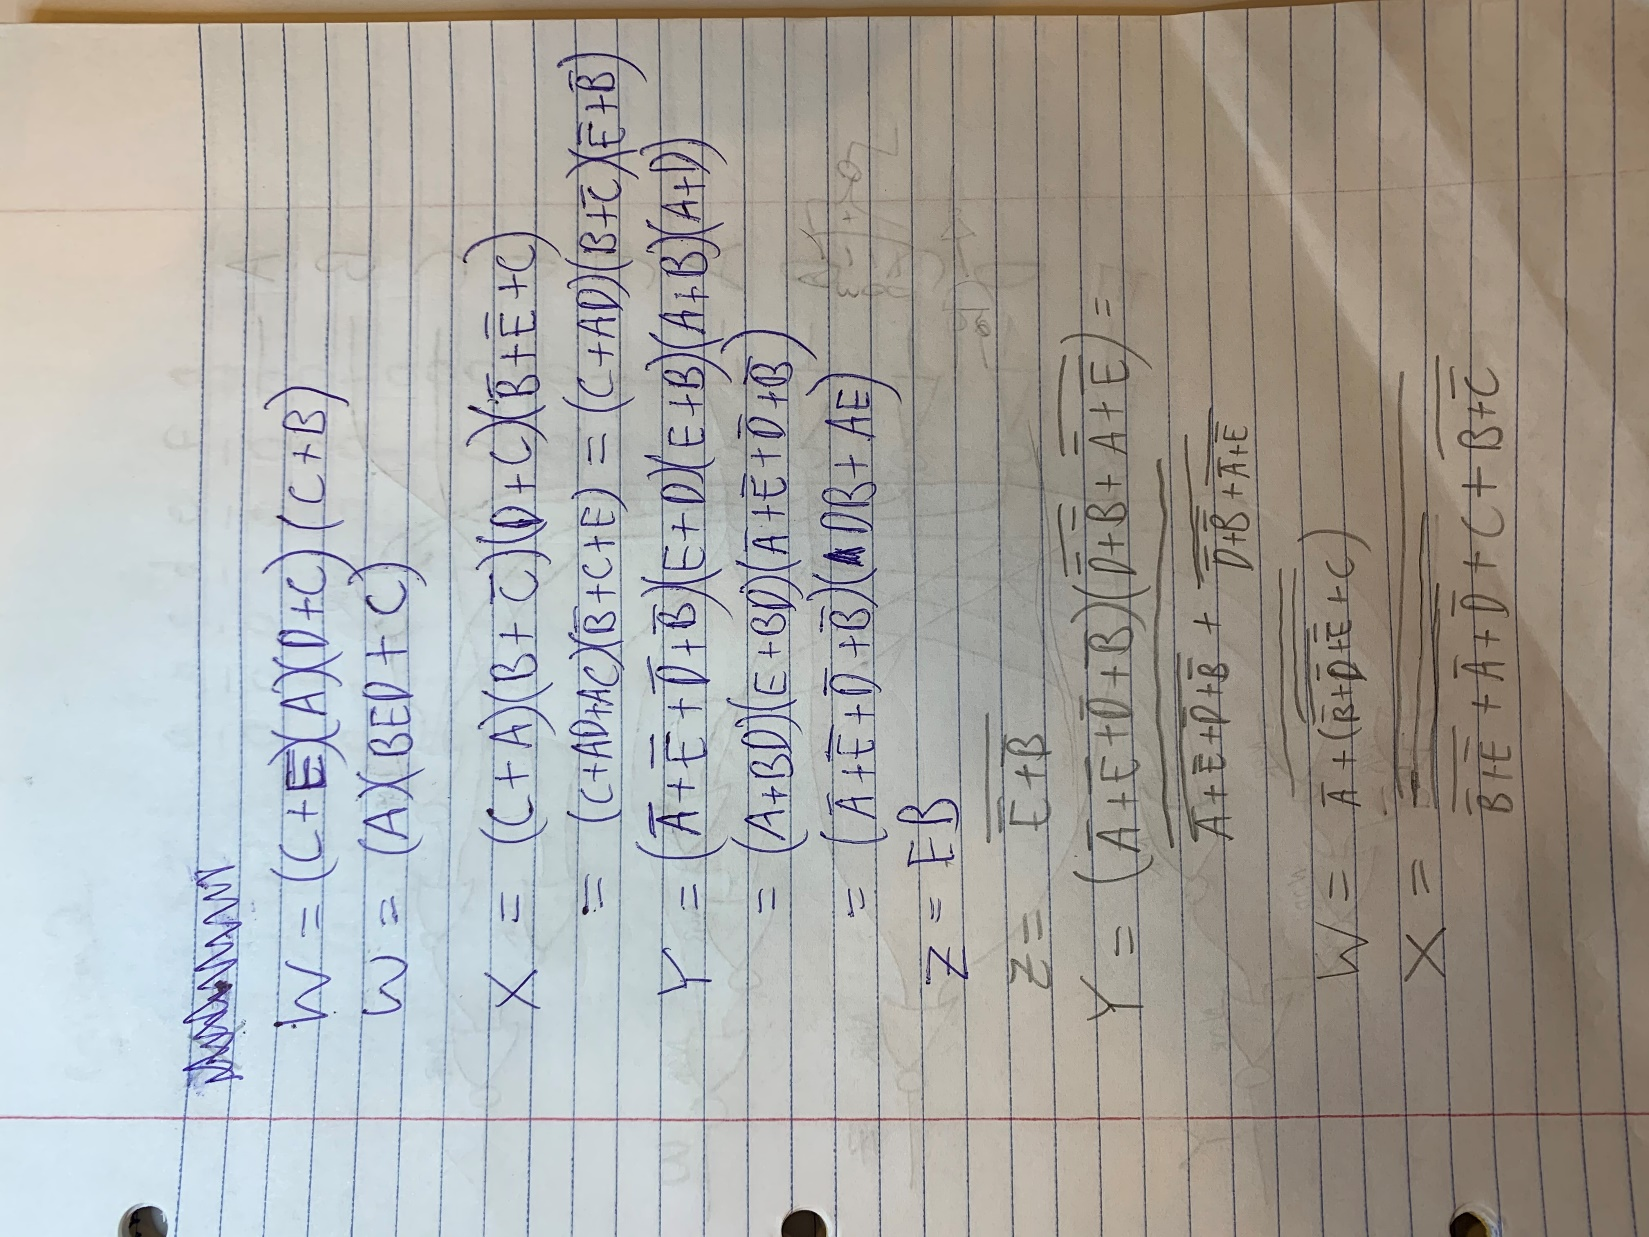 W = (C+E)(A)(D+C)(C+B)
W = (A)(BED+C)
X = (C+A)(B+C̅)(D+C)(B̅+E̅+C)
= (C+AD+AC)(B̅+C+E) = (C+AD)(B+C̅)(E̅+B̅)
Y = (A̅+E̅+D̅+B̅)(E+D)(E+B)(A+B)(A+D)
= (A+BD)(E+BD)(A̅+E̅+D̅+B̅)
= (A̅+E̅+D̅+B̅)(DB+AE)
Z = EB
Z = E̅+B̅
Y = (A̅+E̅+D̅+B̅)(D̅+B̅+A̅+E̅) =
A̅+E̅+D̅+B̅ + D̅+B̅+A̅+E̅
W = A̅+(B̅+D̅+E̅+C)
X =
B̅+E̅+A̅+D̅+C+B+C